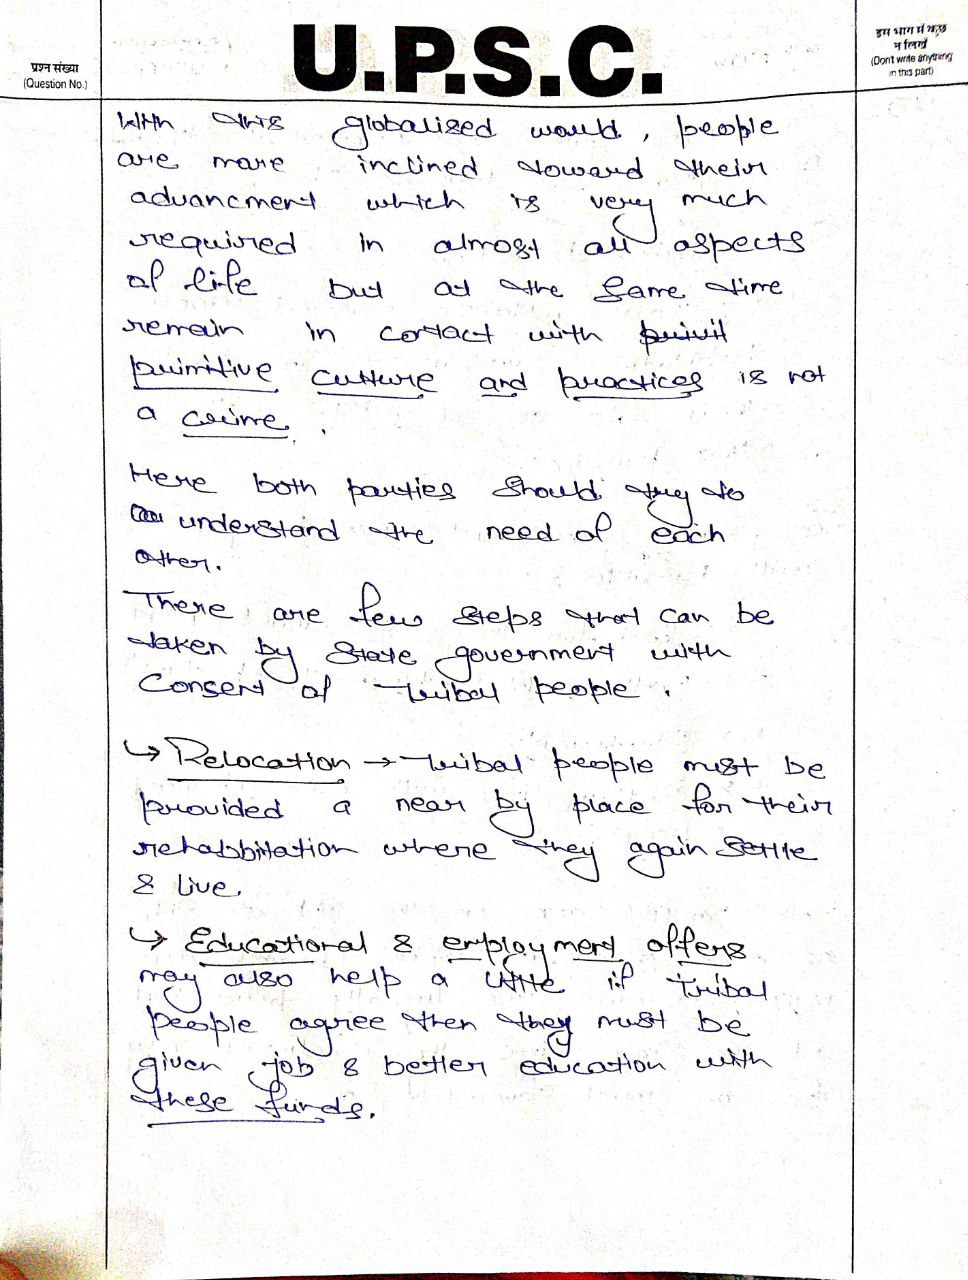 U.P.S.C.
प्रश्न संख्या
(Question No.)
इस भाग में कुछ
न लिखें
(Don't write anything
in this part)
With this globalised would, people
are more inclined toward their
advancment which is very much
required in almost all aspects
of life but at the same time
remain in contact with
primitive culture and practices is not
a crime.
Here both parties should try to
understand the need of each
other.
There are few steps that can be
taken by state government with
consent of tribal people.
↳ Relocation → tribal people must be
provided a near by place for their
rehabbitation where they again settle
& live.
↳ Educational & employment offers
may also help a little if tribal
people agree then they must be
given job & better education with
these funds.